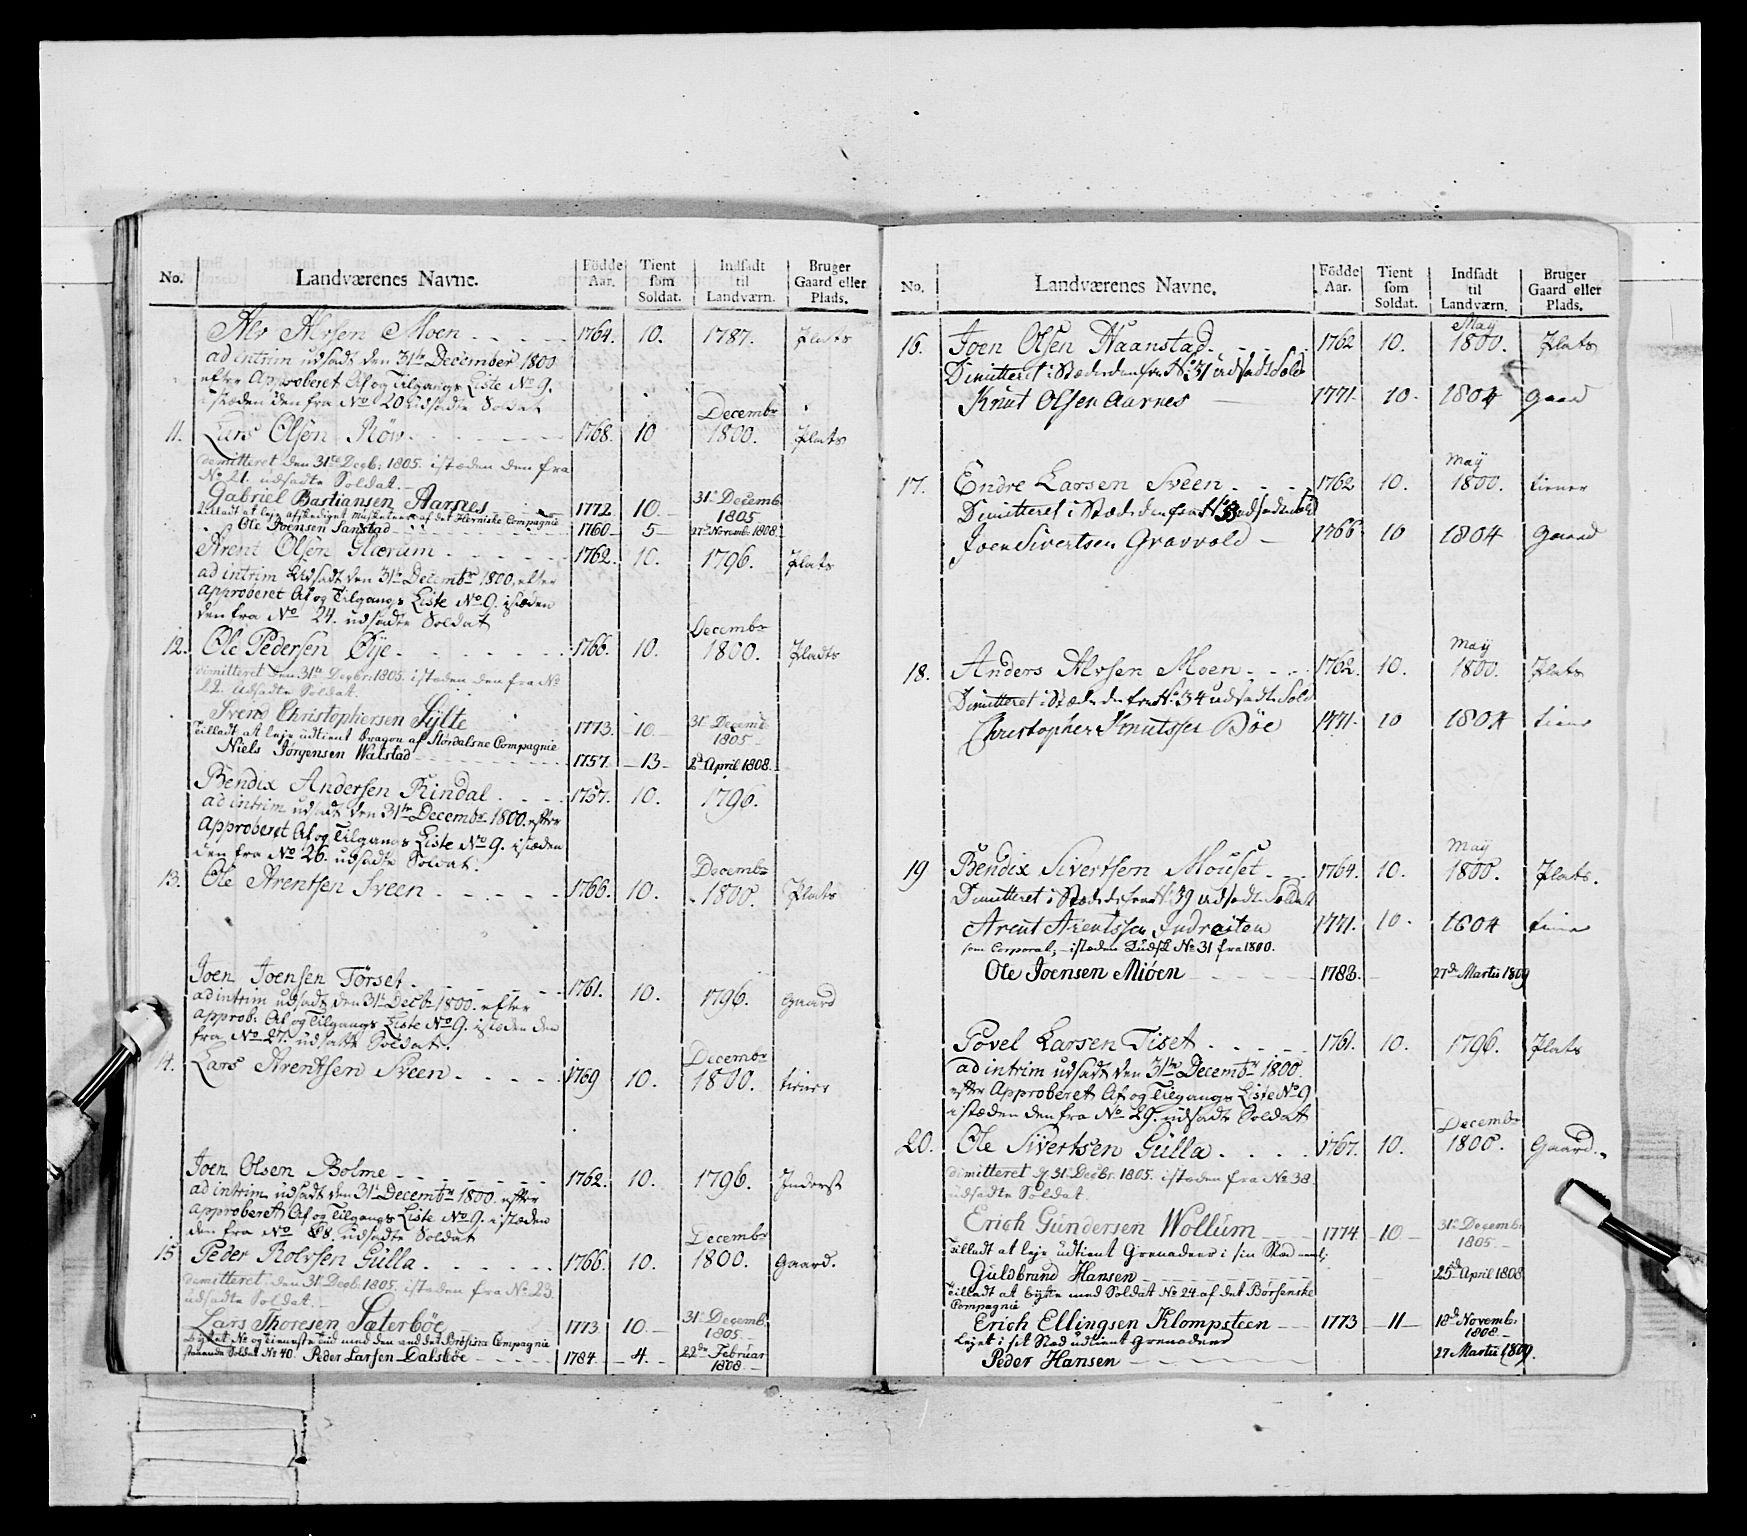 No. Landværenes Navne. Födde Aar. Tient som Soldat. Indsadt til Landværn. Bruger Gaard eller Plads.
Alv Alvsen Moen 1764. 10. 1787. Plats
ad intrim udsadt den 31te December 1800
efter Approberet Af og Tilgangs Liste No 9.
istæden den fra No 20 udsadte Soldat
Decembr
11. Lars Olsen Röv 1768. 10 1800. Plats
demitteret den 31te Decbr: 1805. istæden den fra
No 21. udsadte Soldat.
Gabriel Bastiansen Aarnes 1772. 10. 31te Decemb. 1805
tilladt at leje afskediget Musketeer af det Hevniske Compagnie
Ole Joensen Sanstad 1760 5 27de Novemb. 1808.
Arent Olsen Glærum 1762. 10. 1796. Plats
ad intrim Udsadt den 31te Decembr 1800. efter
Approberet Af og Tilgangs Liste No 9. istæden
den fra No 24. udsadte Soldat
Decembr
12. Ole Pedersen Öye 1766. 10. 1800. Pladts
dimitteret den 31te Decbr: 1805. istæden den fra No
22. udsadte Soldat.
Svend Christophersen Sylte 1773. 10 31te Decemb 1805
tilladt at leje udtient Dragon af Stördalsne Compagnie
Niels Jörgensen Walstad 1757. 13 2de April 1808.
Bendix Andersen Rindal 1757. 10. 1796.
ad intrim udsadt den 31te Decembr. 1800. efter
Approberet Af og Tilgangs Liste No 9. istæden
den fra No 26. udsadte Soldat.
Decembr
13. Ole Arentsen Sveen 1766. 10. 1800. Plats
Joen Joensen Törset 1761. 10. 1796. Gaard
ad intrim udsadt den 31te Decbr 1800. efter
Approb: Af og Tilgangs Liste No 9. istæden den
fra No 27. udsatte Soldat.
Decembr
14. Lars Arentsen Sveen 1769 10. 1800. tiener
Joen Olsen Bolme 1762. 10. 1796. Inderst
ad intrim udsadt den 31te Decembr 1800. efter
Approberet Af og Tilgangs Liste No 9. istæden
den fra No 28. udsadte Soldat
Decembr
15 Peder Rolvsen Gulla 1766. 10. 1800. Gaard.
demitteret den 31te Decb. 1805. istæden fra No. 23.
udsadte Soldat.
Lars Thoresen Sæterböe 1773 10. 31te Decemb. 1805.
byttet No og tieneste tid med den ved det Börsiske Compagnie
staaende Soldat No 40. Peder Larsen Dalsböe 1784. 4. 22de Februar 1808
No. Landværenes Navne. Födde Aar. Tient som Soldat. Indsadt til Landværn. Bruger Gaard eller Plads.
May
16. Joen Olsen Haanstad 1762 10. 1800. Plats
Dimitteret i Stæde den fra No 31 udsadte Sold
Knut Olsen Aarnes 1771. 10. 1804 Gaard
May
17. Endre Larsen Sveen 1762 10. 1800. tiener
Dimitteret i Stæde den fra No 33 udsadte Sold
Joen Sivertsen Gravvold 1766 10 1804 Gaard
May
18. Anders Alvsen Moen 1762. 10. 1800. Plats
Dimitteret i Stæde den fra No 34 udsadte Sold
Christopher Knutssen Böe 1771. 10 1804 tiener
May
19 Bendix Sivertsen Mouset 1764. 10. 1800. Plats.
Dimitteret i Stæde den fra No 39 udsadte Soldat
Arent Arentssen Indreiten 1771. 10. 1804 tiener
som Corporal, istæden Luds. No 31 fra 1800.
Ole Joensen Miöen 1783. 27de Martii 1809
Povel Larsen Tiset 1761. 10. 1796. Plats
ad intrim udsadt den 31te Decembr 1800.
efter Approberet Af og Tilgangs Liste No 9
istæden den fra No 29. udsadte Soldat
Decembr
20. Ole Sivertsen Gulla 1767. 10. 1800. Gaard.
dimitteret d. 31te Decbr. 1805. istæden fra No. 38
udsadte Soldat.
Erich Gundersen Wollum 1774 10 31te Decemb. 1805.
tilladt at leje udtient Grenadeer i sin Stad nml:
Guldbrand Hansen 25de April 1808
tilladt at bytte med Soldat No 24 af det Börsenske
Compagnie
Erich Ellingsen Klompsteen 1773 11 18de Novemb: 1808
lejet i sit Stad udtient Grenadeer
Peder Hansen 27 Martii 1809.